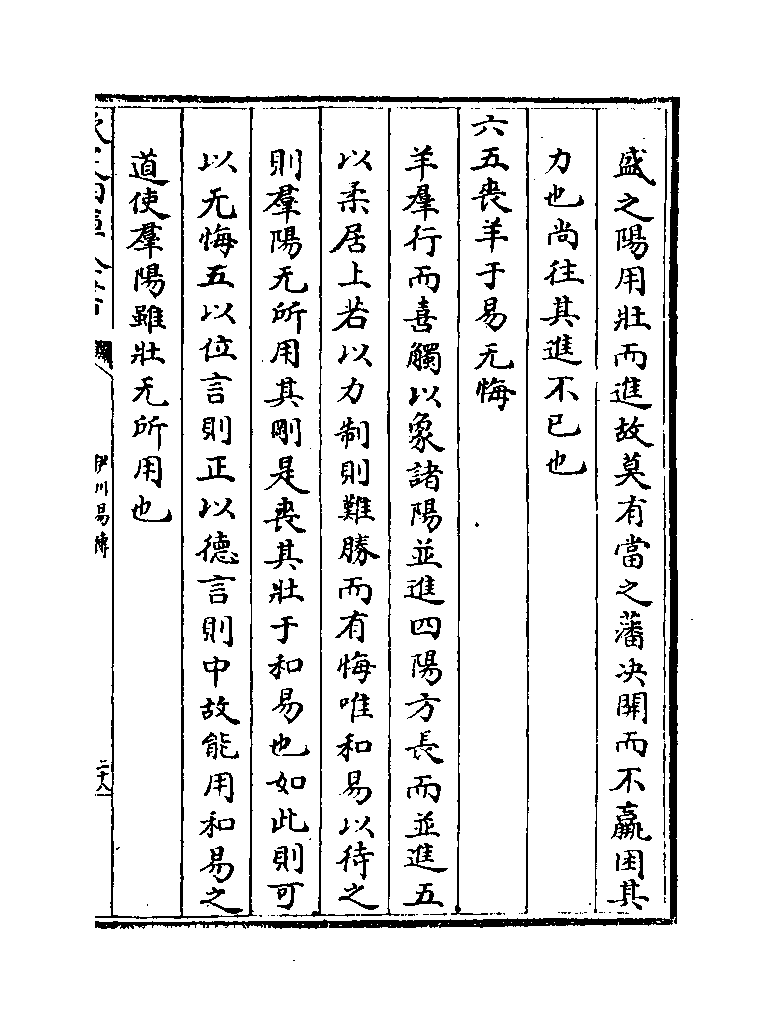 盛之陽用壯而進故莫有當之藩决開而不羸困其
力也尚往其進不已也
六五喪羊于易无悔
羊羣行而喜觸以象諸陽並進四陽方長而並進五
以柔居上若以力制則難勝而有悔唯和易以待之
則羣陽无所用其剛是喪其壯于和易也如此則可
以无悔五以位言則正以德言則中故能用和易之
道使羣陽雖壯无所用也
伊川易傳
二十八